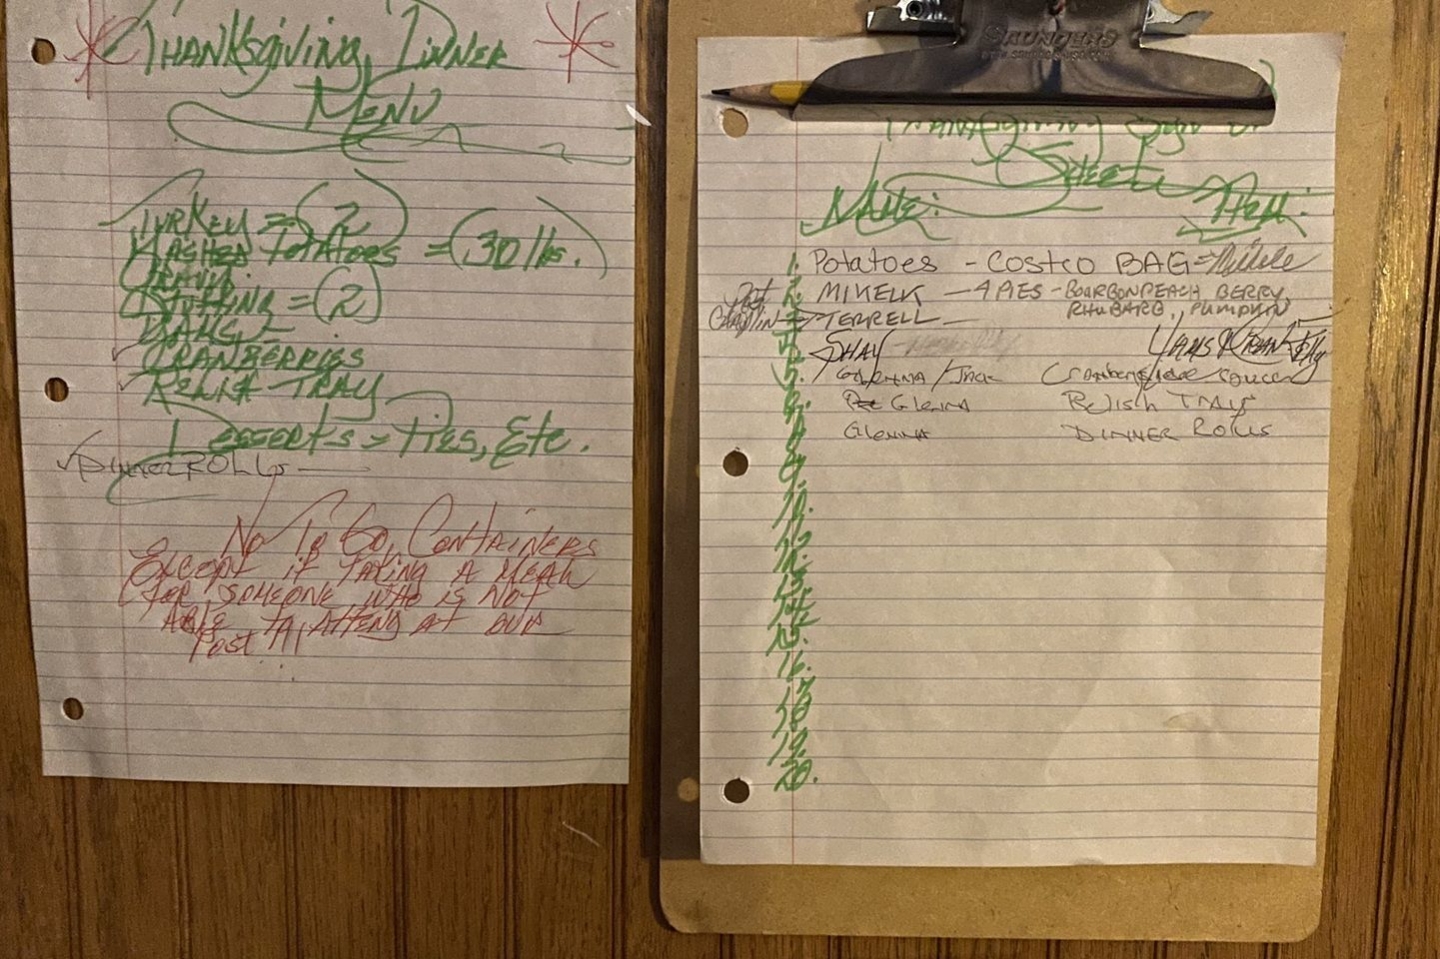 THANKSgiving DINNER
MENU
TURKEY = (2)
MASHED POTATOES = (30 lbs.)
GRAVY
STUFFING = (2)
CRANBERRIES
RELISH TRAY
DESSERTS = PIES, Etc.
✓ DINNER ROLLS
NO TO GO CONTAINERS
EXCEPT if TAKING A MEAL
FOR SOMEONE WHO IS NOT
ABLE TO ATTEND AT OUR
POST
SAUNDERS
THANKSgiving Sign UP
SHEET
NAME: ITEM:
1. Potatoes - COSTCO BAG =
2. MIKELK - 4 PIES - BOURBON PEACH BERRY,
RHUBARB, PUMPKIN
3. TERRELL
4. SHAY YAMS &
5. Cranberry sauce
6. Glenna Relish Trays
Glenna DINNER ROLLS
9.
10.
12.
13.
14.
15.
16.
17.
18.
19.
20.